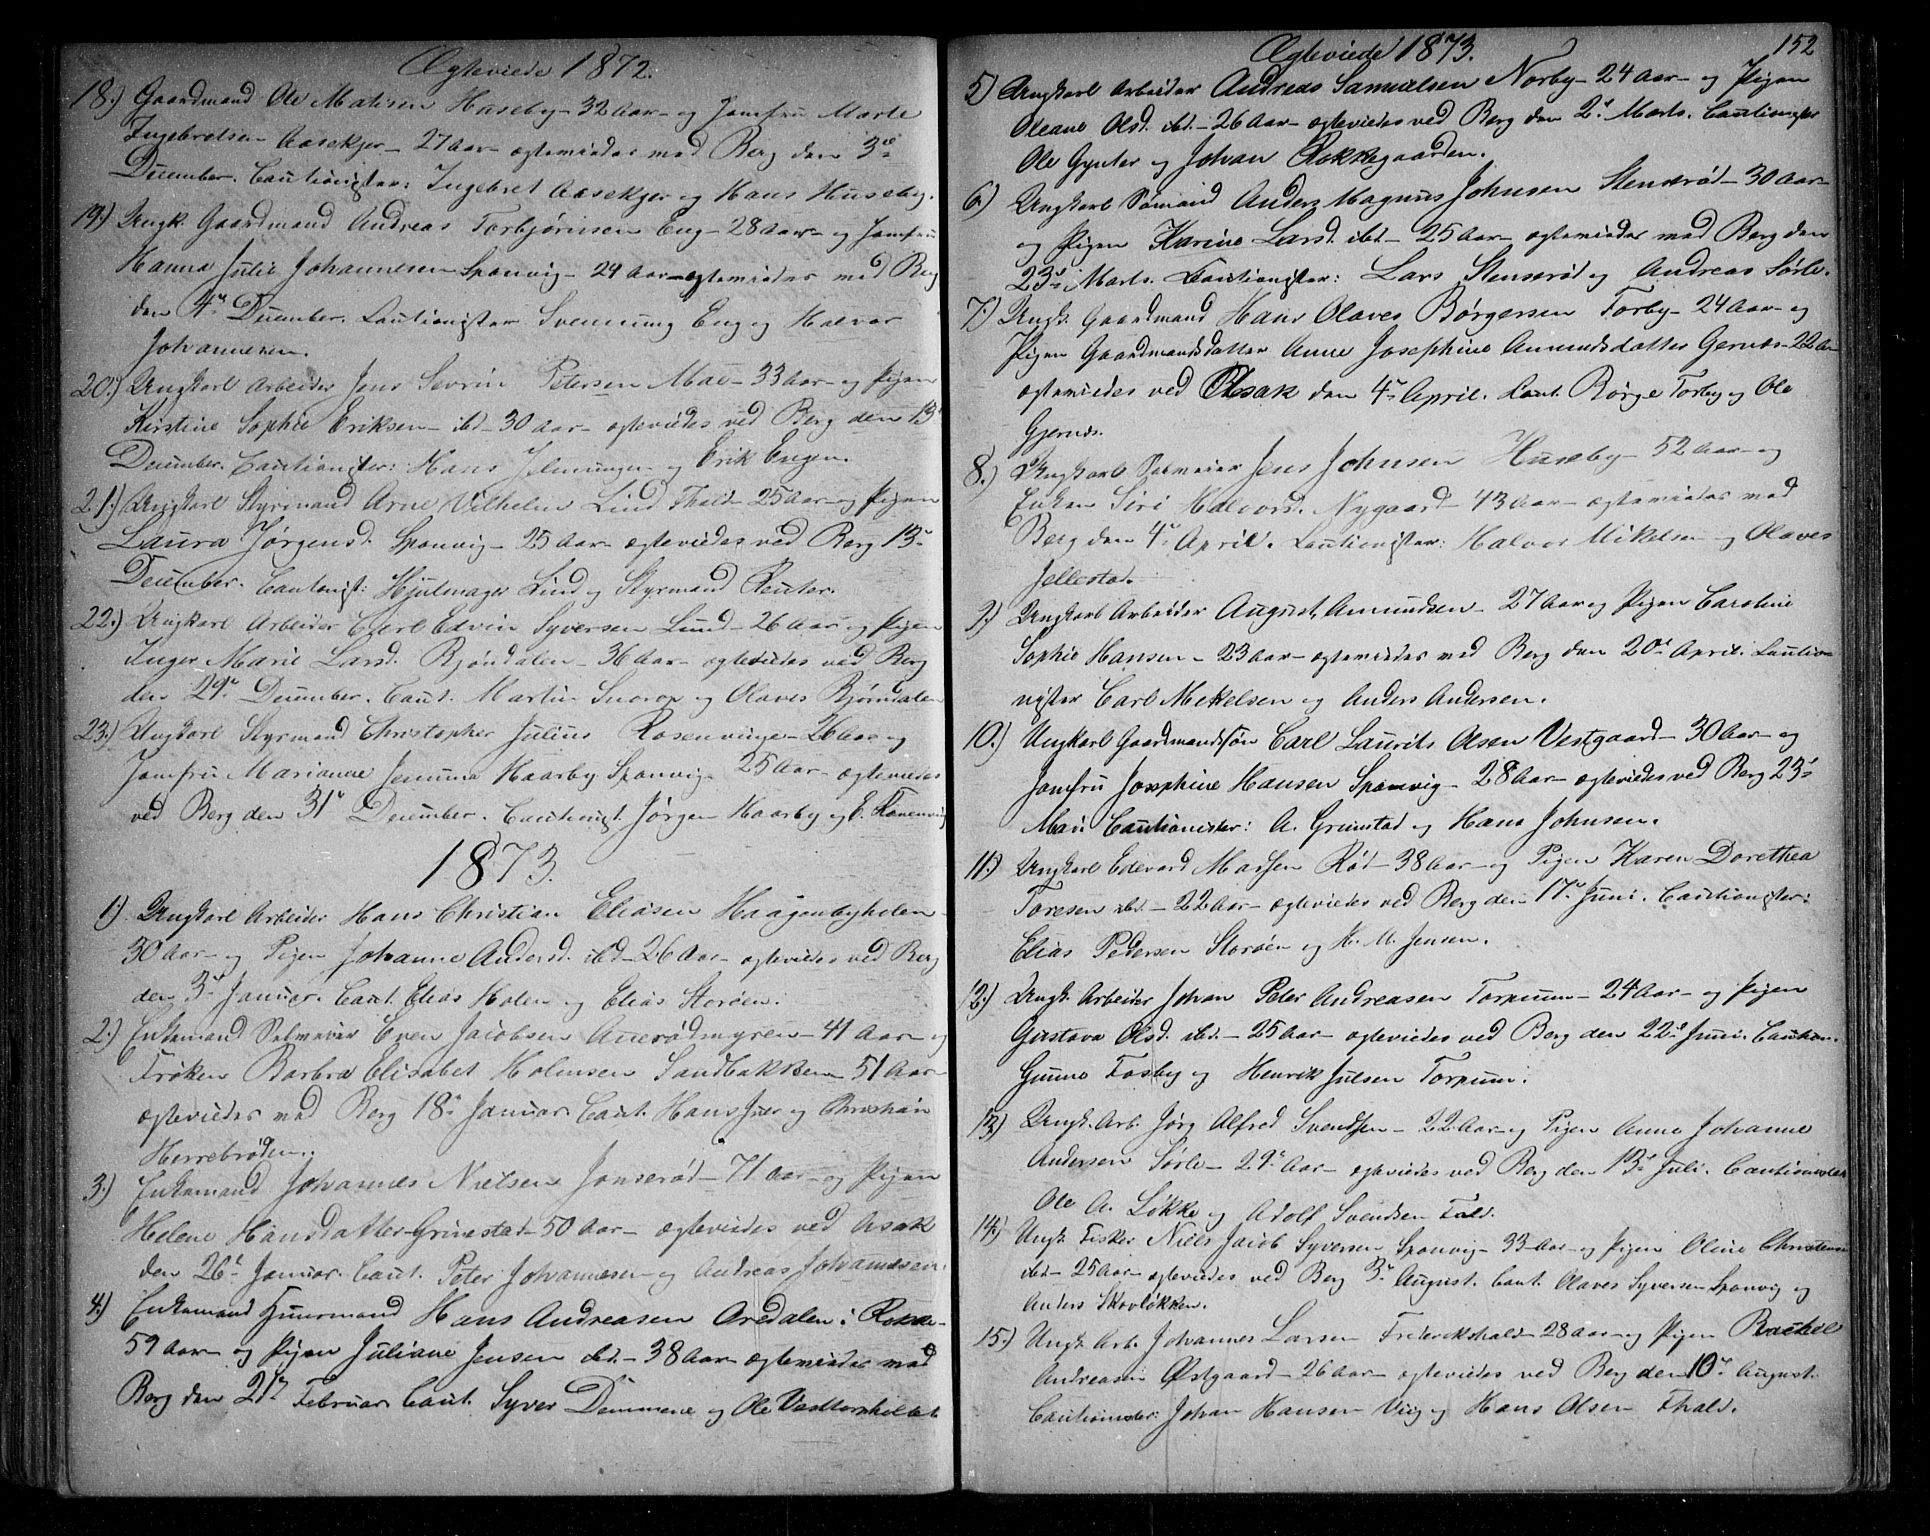 Ægteviede 1872.
18.) Gaardmand Ole Matisen Huseby - 32 Aar - og Jomfru Marte
Ingebretsen Aasekjer - 27 Aar - ægteviedes ved Berg den 3de
December. Cautionister: Ingebret Aasekjer og Hans Huseby.
19.) Ungk. Gaardmand Andreas Torbjørnsen Eng - 28 Aar - og Jomfru
Hanna Julie Johannesen Sponvig - 24 Aar - ægteviedes ved Berg
den 4de December. Cautionister Svenning Eng og Halvor
Johannesen.
20.) Ungkarl Arbeider Jens Sevrin Petersen Moe - 33 Aar - og Pigen
Kirstine Sophie Eriksen - ibd - 30 Aar - ægteviedes ved Berg den 13de
December. Cautionister: Hans og Erik Engen.
21.) Ungkarl Styrmand Arne Vilhelm Lind Fhald - 25 Aar - og Pigen
Laura Jørgensd. Sponvig - 25 Aar - ægteviedes ved Berg 13de
December. Cautionist: Hjulmager Lind og Styrmand Reuter.
22.) Ungkarl Arbeider Carl Edvin Syversen Lund - 26 Aar og Pigen
Inger Marie Larsd. Bjøndalen - 36 Aar - ægteviedes ved Berg
den 29de December. Caut. Martin og Olaves Bjørndalen
23.) Ungkarl Styrmand Christopher Julius Rosenvinge - 26 Aar og
Jomfru Marianne Jemima Haarby Sponvig - 25 Aar - ægteviedes
ved Berg den 31te December. Cautionist. Jørgen Haarby og E.
1873.
1.) Ungkarl Arbeider Hans Christian Eliasen Haagenbyholen
30 Aar - og Pigen Johanne Andersd. ibd - 26 Aar - ægteviedes ved Berg
den 3de Januar. Caut. Elias Holen og Elias Storøen.
2.) Enkemand Selveier Even Jacobsen Anerødmyren - 41 Aar - og
Frøken Barbra Elisabet Holmsen Sandbakken 51 Aar
ægteviedes ved Berg 18de Januar. Caut. Hans og Christian
Herrebrøden.
3.) Enkemand Johannes Nielsen Jonserød - 71 Aar - og Pigen
Helene Hansdatter Grimestad - 50 Aar - ægteviedes ved Asak
den 26de Januar. Caut. Peter Johannesen og Andreas Johannesen.
4.) Enkemand Huusmand Hans Andreasen Aredalen i Rokke
59 Aar - og Pigen Juliane Jensen ibd - 38 Aar - ægteviedes ved
Berg den 21de Februar. Caut. Syver Demmene og Ole Vestterskillet
Ægteviede 1873. 152
5.) Ungkarl Arbeider Andreas Samuelsen Norby - 24 Aar - og Pigen
Oleane Olsd. ibd. - 26 Aar - ægteviedes ved Berg den 2de Marts. Cautionister
Ole Gynter og Johan Rokkegaarden.
6.) Ungkarl Sømand Anders Magnus Johnsen Stenserød - 30 Aar -
og Pigen Karine Larsd. ibd - 25 Aar - ægteviedes ved Berg den
23de Marts. Cautionister: Lars Stenserød og Andreas Sørli.
7.) Ungk. Gaardmand Hans Olaves Børgersen Torby - 24 Aar - og
Pigen Gaardmandsdatter Anne Josephine Amundsdatter Gernæs - 22 Aar
ægteviedes ved Asak den 4de April. Caut. Børge Torby og Ole
Gjernæs.
8.) Ungkarl Selveier Jens Johnsen Huseby - 52 Aar - og
Enken Siri Halvorsd. Nygaard - 43 Aar - ægteviedes ved
Berg den 4de April. Cautionister: Halvor Mikelsen og Olaves
Jellestad.
9.) Ungkarl Arbeider August Amundsen - 27 Aar og Pigen Caroline
Sophie Hansen - 23 Aar - ægteviedes ved Berg den 20de April. Cautio-
nister Carl Mekelsen og Anders Andersen.
10.) Ungkarl Gaardmandssøn Carl Laurits Olsen Vestgaard - 30 Aar - og
Jomfru Josephine Hansen Sponvig - 28 Aar - ægteviedes ved Berg 23de
Mai Cautionister: A. Grimstad og Hans Johnsen.
11.) Ungkarl Edevard Matsen Rød - 38 Aar - og Pigen Karen Dorethea
Toresen ibd. - 22 Aar - ægteviedes ved Berg den 17de Juni. Cautionister:
Elias Pedersen Storøen og K. M. Jensen.
12.) Ungk. Arbeider Johan Peter Andreasen Torpum - 24 Aar - og Pigen
Gustava Olsd. ibd. - 25 Aar - ægteviedes ved Berg den 22de Juni. Caution.
Gunne Fosby og Henrik Julsen Torpum.
13.) Ungk. Arb. Jørg Alfred Svendsen - 22 Aar - og Pigen Anne Johanne
Andersen Sørli - 29 Aar - ægteviedes ved Berg den 13de Juli. Cautionister
Ole A. Løkke og Adolf Svendsen Fald.
14.) Ungk. Fisker Niels Jacob Syversen Sponvig - 33 Aar - og Pigen Oline Christensen
ibd - 25 Aar - ægteviedes ved Berg 3de August. Caut. Olaves Syversen Sponvig og
Anders Skovløkken.
15.) Ungk. Arb. Johannes Larsen Frederikshald - 28 Aar - og Pigen Rachel
Andreasen Østgaard - 26 Aar - ægteviedes ved Berg den 10de August.
Cautionister: Johan Hansen Viig og Hans Olsen Fhald.